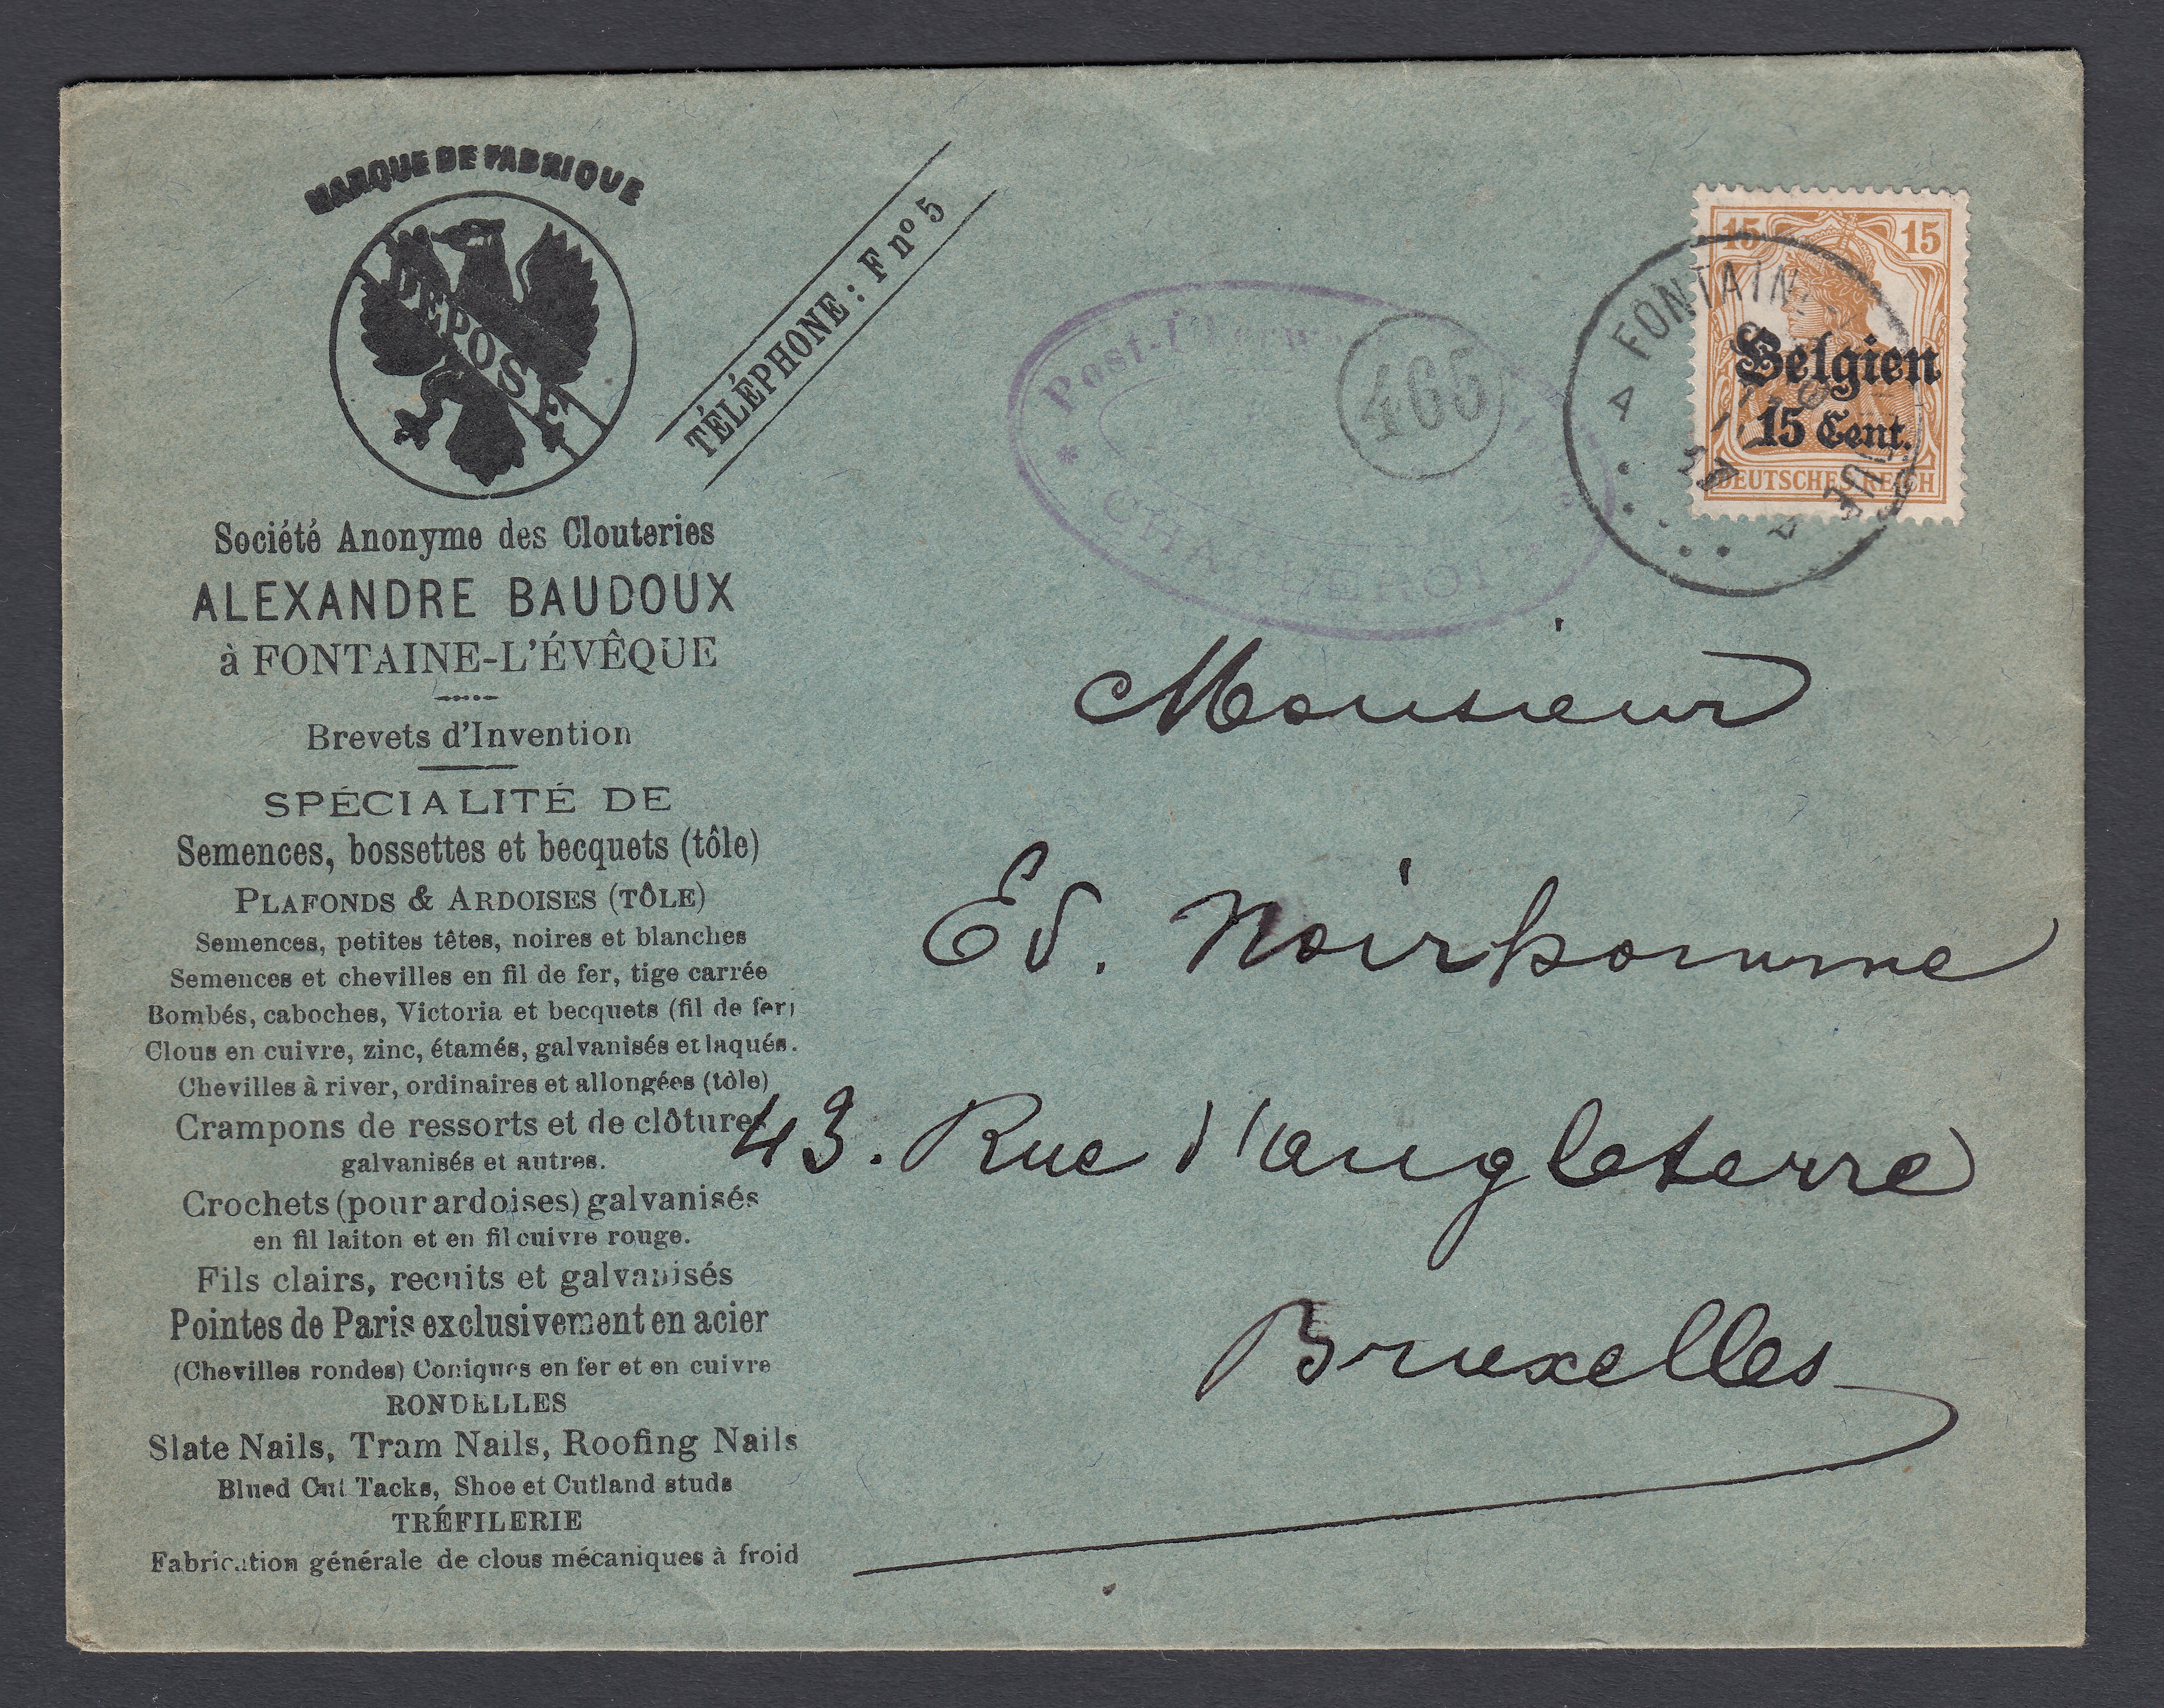 MARQUE DE FABRIQUE
DÉPOSÉ
TÉLÉPHONE : F nº 5
Société Anonyme des Clouteries
ALEXANDRE BAUDOUX
à FONTAINE-L'ÉVÊQUE
Brevets d'Invention
SPÉCIALITÉ DE
Semences, bossettes et becquets (tôle)
PLAFONDS & ARDOISES (TÔLE)
Semences, petites têtes, noires et blanches
Semences et chevilles en fil de fer, tige carrée
Bombés, caboches, Victoria et becquets (fil de fer)
Clous en cuivre, zinc, étamés, galvanisés et laqués.
Chevilles à river, ordinaires et allongées (tôle)
Crampons de ressorts et de clôtures
galvanisés et autres.
Crochets (pour ardoises) galvanisés
en fil laiton et en fil cuivre rouge.
Fils clairs, recuits et galvanisés
Pointes de Paris exclusivement en acier
(Chevilles rondes) Coniques en fer et en cuivre
RONDELLES
Slate Nails, Tram Nails, Roofing Nails
Blued Cut Tacks, Shoe et Cutland studs
TRÉFILERIE
Fabrication générale de clous mécaniques à froid
Post-
CHARLEROI
465
15 15
Belgien
15 Cent.
DEUTSCHES REICH
FONTAIN
Monsieur
Ed. Noirhomme
43. Rue d'angleterre
Bruxelles